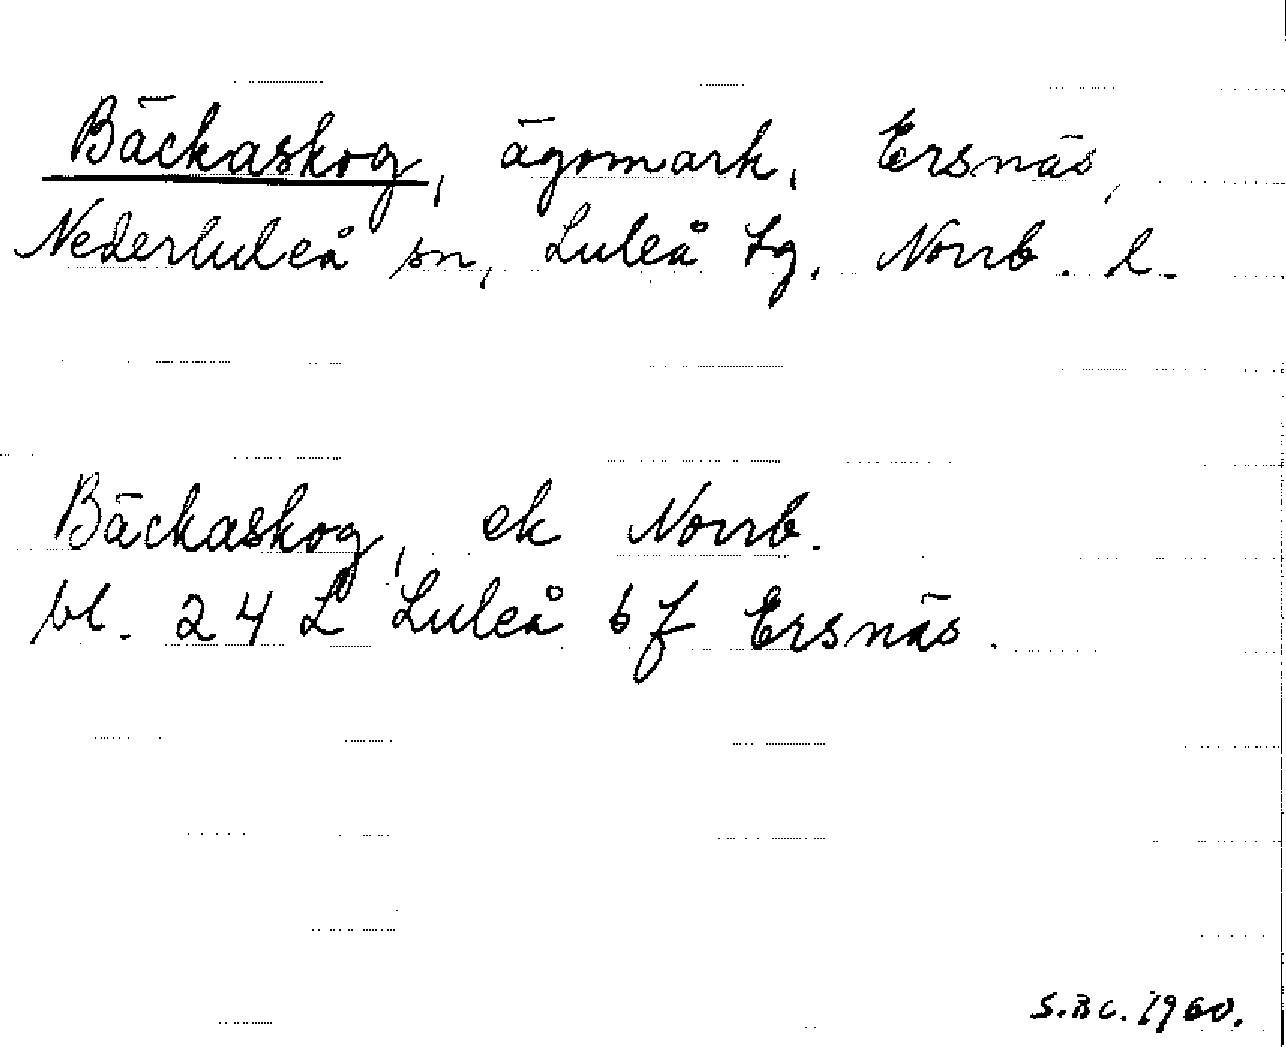 Bäckaskog, ägomark, Ersnäs,
Nederluleå sn, Luleå tg. Norrb. l.
Bäckaskog, ek Norrb.
bl. 24 L Luleå 6 f Ersnäs.
S.B.C. 1960.